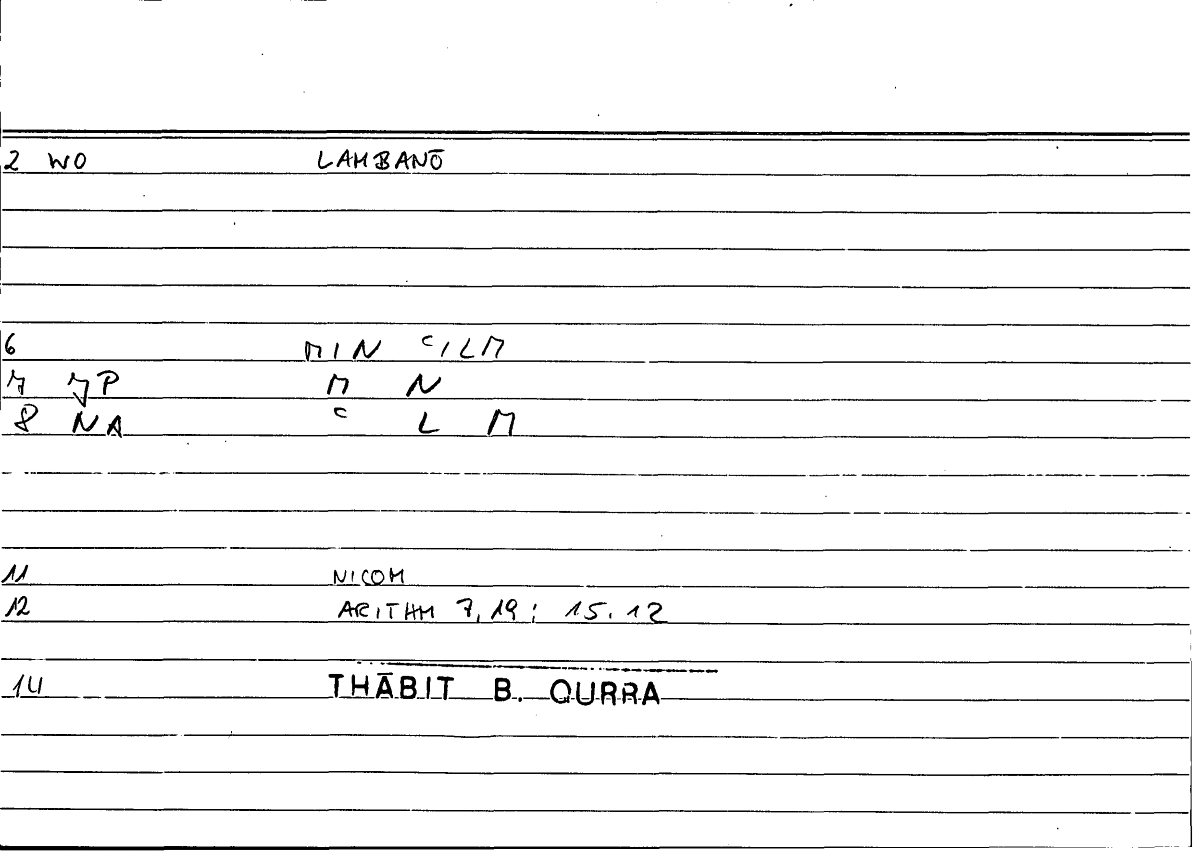 2 WO LAMBANŌ
6 MIN ᶜILM
7 JP M N
8 NA ᶜ L M
11 NICOM
12 ARITHM 7,19; 15.12
14 THĀBIT B. QURRA